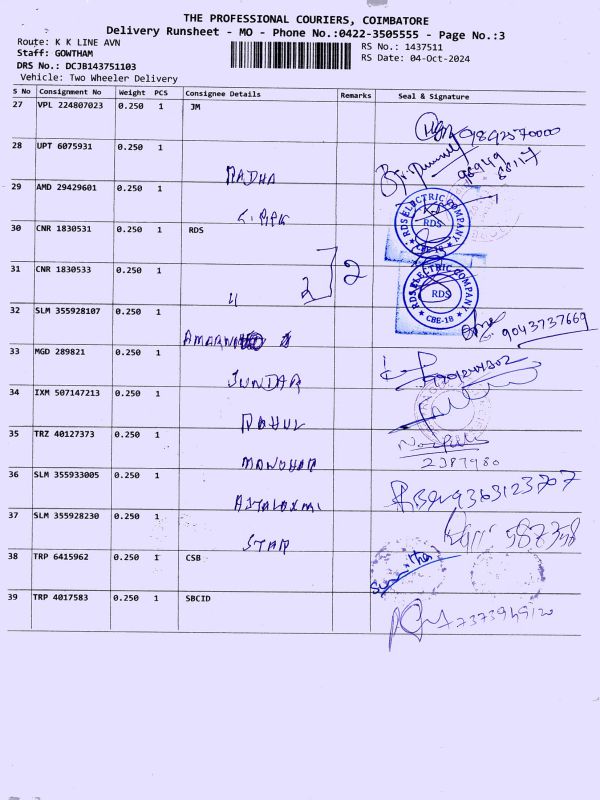 THE PROFESSIONAL COURIERS, COIMBATORE
Delivery Runsheet - MO - Phone No.:0422-3505555 - Page No.:3
Route: K K LINE AVN
RS No.: 1437511
Staff: GOWTHAM
RS Date: 04-Oct-2024
DRS No.: DCJB143751103
Vehicle: Two Wheeler Delivery
S No Consignment No Weight PCS Consignee Details Remarks Seal & Signature
27 VPL 224807023 0.250 1 JM
9892570000
28 UPT 6075931 0.250 1
RADHA
29 AMD 29429601 0.250 1
RDS ELECTRIC COMPANY
RDS
CBE-18
30 CNR 1830531 0.250 1 RDS
31 CNR 1830533 0.250 1
11 2 2
RDS ELECTRIC COMPANY
RDS
★ CBE-18 ★
32 SLM 355928107 0.250 1
9043737669
33 MGD 289821 0.250 1
SUNDAR
34 IXM 507147213 0.250 1
RAHUL
35 TRZ 40127373 0.250 1
MANOHAR
2387980
36 SLM 355933005 0.250 1
9363123707
37 SLM 355928230 0.250 1
STAR
38 TRP 6415962 0.250 1 CSB
39 TRP 4017583 0.250 1 SBCID